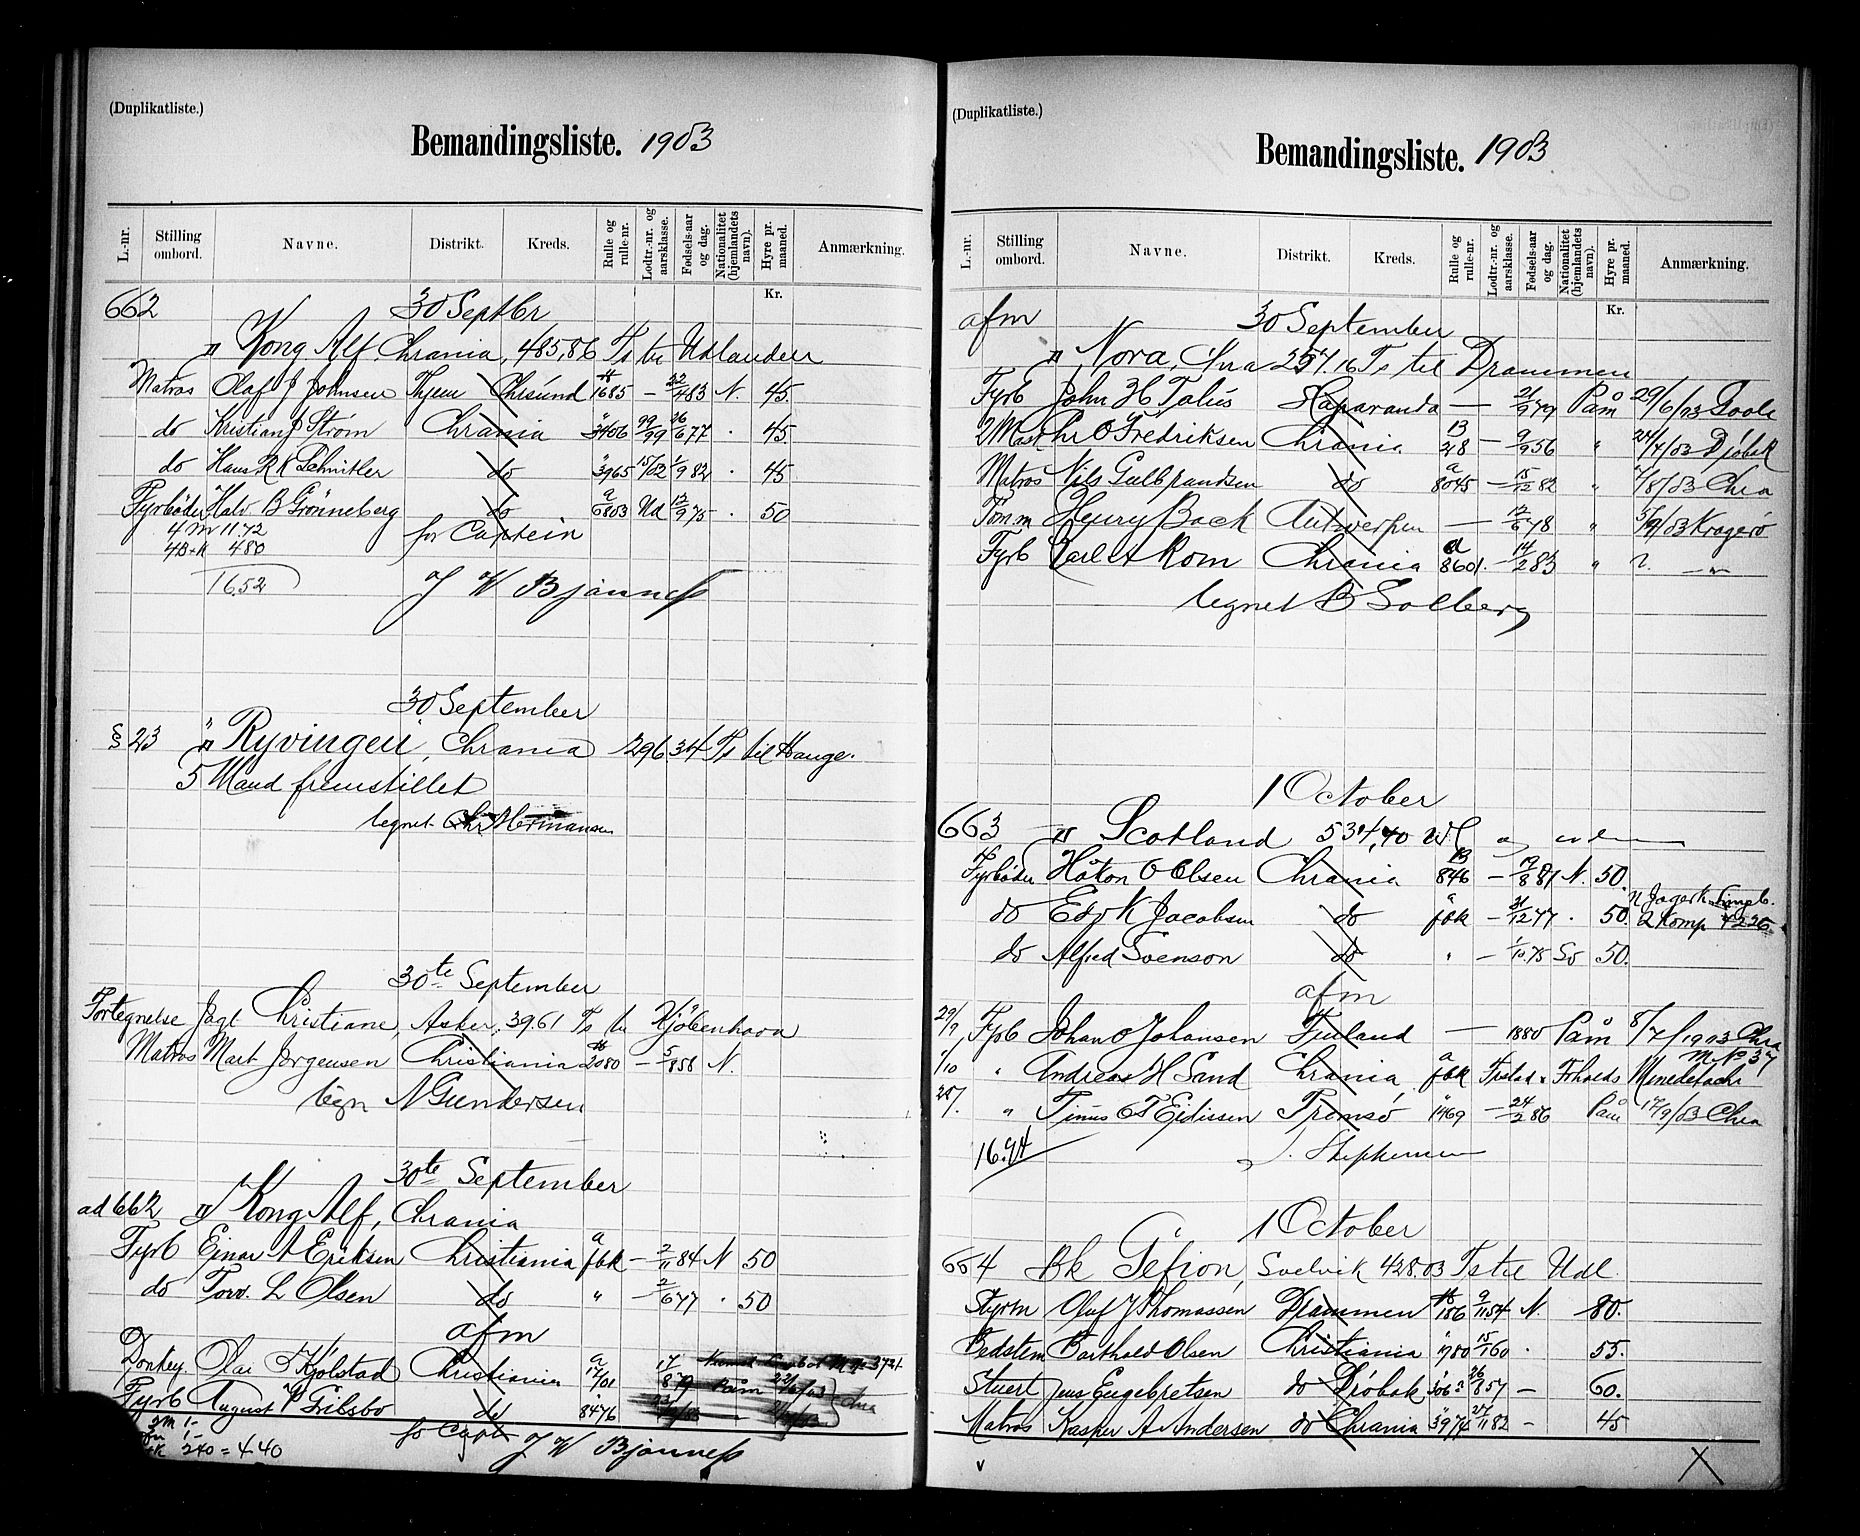 (Duplikatliste.)
Bemandingsliste. 1903
L.-nr. Stilling ombord. Navne. Distrikt. Kreds. Rulle og rulle-nr. Lodtr.-nr. og aarsklasse. Fødsels-aar og dag. Nationalitet (hjemlandets navn). Hyre pr. maaned. Anmærkning.
Kr.
662 30 Septbr
" Kong Alf, Chrania, 485,86 Ts til Udlandet
Matros Olaf J Johnsen Thjem Chrsund 1685 — 22/4 83 N. 45.
do Kristian J Strøm Chrania 3406 99/99 26/6 77 . 45
do Hans R K Schnitler do 3965 15/02 1/9 82 . 45
Fyrbøder Halv B Grønneberg do a 6803 Ud 12/9 75 . 50
4 M 11.72 for Captein
480
16.52 J W Bjønness
30 September
§ 23 " Ryvingen, Chrania 296 34 Ts til Hauge.
5 Mand fremstillet
tegnet Chr Hermansen
30te September
Fortegnelse Jagt Christiane, Asker, 39.61 Ts til Kjøbenhavn
Matros Mart Jørgensen Christiania 2080 — 5/8 58 N.
tegn N Gundersen
30te September
ad 662 Kong Alf, Chrania
Fyrb Einar A Eriksen Christiania a fbk — 2/11 84 N 50
do Torv. L Olsen do " — 2/6 77 . 50
afm
Donkey. Olai Kjølstad Christiania a 1701 17/8 79
Fyrb August W Gribsbo do 8476
240 = 4.40 for Capt J W Bjønness
(Duplikatliste.)
Bemandingsliste. 1903
L.-nr. Stilling ombord. Navne. Distrikt. Kreds. Rulle og rulle-nr. Lodtr.-nr. og aarsklasse. Fødsels-aar og dag. Nationalitet (hjemlandets navn). Hyre pr. maaned. Anmærkning.
Kr.
afm 30 September
" Nora, Chra 257.16 Ts til Drammen
Fyrb John H Talus Haparanda — 21/9 79 Påm 29/6/03 Goole
2 Mast Chr O Fredriksen Chrania 13 28 — 9/9 56 " 24/7/03 Drøbak
Matros Nils Gulbrandsen do a 8045 — 15/12 82 " /8/03 Chra
Tømm Henry Back Antwerpen — 12/6 78 " /9/03 Kragerø
Fyrb Carl A Rom Chrania a 8601. — 14/2 83 " — " —
tegnet B Solberg
1 October
663 " Scotland 534,40
Fyrbøder Håkon O Olsen Chrania 13 846 — 19/8 81 N. 50.
do Edv K Jacobsen do " fbk — 31/12 77 . 50. 2 Komp
do Alfred Svenson do " — 1/10 75 Sv 50.
afm
29/9 Fyrb Johan O Johansen Finland — 1880 Påm 8/7/1903 Chra
1/10 " Andreas H Sand Chrania, a fbk M No 37
287. " Tinus E T Eidissen Tromsø " 1469 — 24/2 86 Påm 17/9/03 Chra
16.94
1 October
664 Bk Gefion, Svelvik 428.03 Ts til Udl.
Styrm Oluf J Thomassen Drammen 186 9/11 54 N. 80.
Bedstem Barthold Olsen Christiania " 780 15/1 60 . 55.
Stuert Jens Engebretsen do Drøbak 26/8 57 — 60.
Matros Kasper A Andersen do Chrania " 3974 27/11 82 — 45
v X